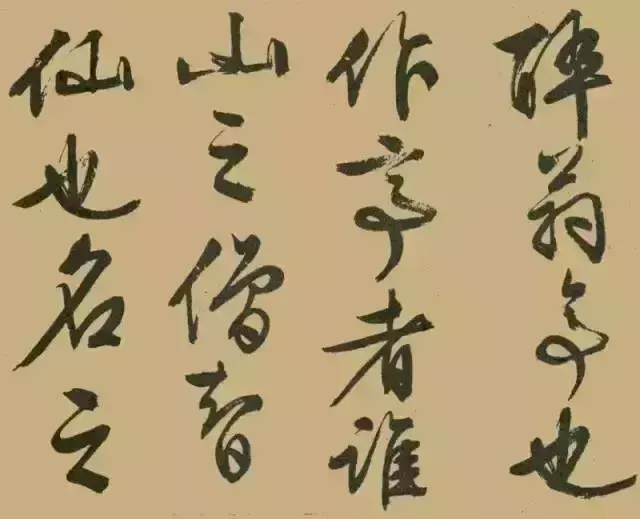 醉翁亭也
作亭者谁
山之僧智
仙也名之